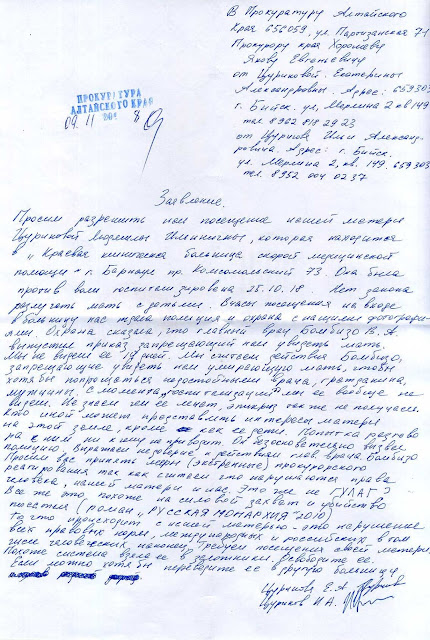 В Прокуратуру Алтайского
Края 656059, ул. Партизанская 71
Прокурору края Хоролаву
Якову Евгеньевичу
от Цуриковой Екатерины
Александровны. Адрес: 659303
г. Бийск. ул, Мерлина 2 кв 149
тел 8962 818 29 23
от Цурикова Ильи Александ-
ровича. Адрес: г. Бийск.
ул. Мерлина 2, кв. 149. 659303
тел. 8952 004 0237
ПРОКУРАТУРА
АЛТАЙСКОГО КРАЯ
09 11 201 8
Заявление.
Просим разрешить нам посещение нашей матери
Цуриковой Людмилы Ильиничны, которая находится
в "Краевая клиническая больница скорой медицинской
помощи" г. Барнаул пр Комсомольский 73. Она была
против воли госпитализирована 25.10.18. Нет закона
разлучать мать с детьми. В часы посещения на входе
в больницу нас ждала полиция и охрана с нашими фотографи-
ями. Охрана сказала, что главный врач Бомбизо В. А.
выпустил приказ запрещающий нам увидеть мать.
Мы не видели ее дней. Мы считаем действия Бомбизо,
запрещающие увидеть нам умирающую мать, чтобы
хотя бы попрощаться недостойными врача, гражданина,
мужчины. С момента "госпитализации" мы ее вообще не
видели. Не знаем чем ее лечат, эпикриз так же не получаем.
Кто иной может представлять интересы матери
на этой земле, кроме как ее дети. Попытка разговора
с ним ни к чему не приводит. Он безосновательно вызвал
полицию. Выражаем недоверие к действиям глав. врача Бомбизо
Просим вас принять меры (экстренные) прокурорского
реагирования так как считаем что нарушаются права
человека, нашей матери и нас. Это что не ГУЛАГ?
Все же это похоже на силовой захват и убийство
поэтессы (роман "РУССКАЯ МОНАРХИЯ" 2010)
То что происходит с нашей матерью - это нарушение
всех правовых норм, международных и российских, в том
числе человеческих, наконец. Требуем посещения своей матери.
Похоже система взяла ее в заложники. Освободите ее.
Если можно хотя бы переведите ее в другую больницу
Цурикова Е. А.
Цуриков И. А.